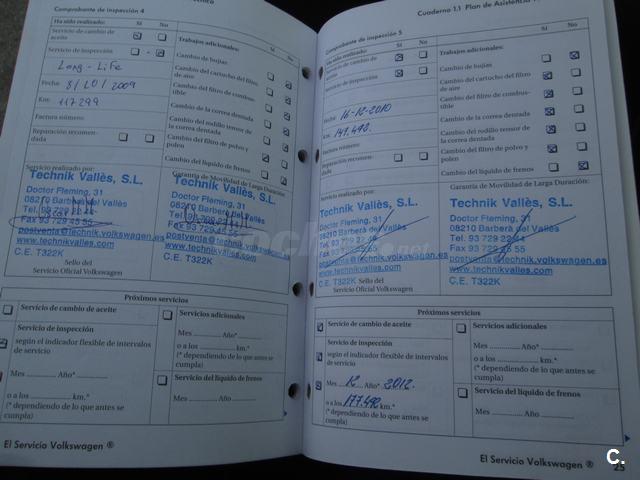 écnico
Comprobante de inspección 4
Ha sido realizado:
Sí
No
Servicio de cambio de
aceite
Servicio de inspección
Long - Life
Fecha 8/10/2009
Km 117299
Factura número:
Reparación recomen-
dada
Trabajos adicionales:
Sí
No
Cambio de bujías
Cambio del cartucho del filtro
de aire
Cambio del filtro de combus-
tible
Cambio de la correa dentada
Cambio del rodillo tensor de
la correa dentada
Cambio del filtro de polvo y
polen
Cambio del líquido de frenos
Servicio realizado por:
Technik Vallès, S.L.
Doctor Fleming, 31
08210 Barberà del Vallès
Tel. 93 729 22 44
Fax 93 729 45 55
postventa@technik.volkswagen.es
www.technikvalles.com
C.E. T322K
Sello del
Servicio Oficial Volkswagen
Garantía de Movilidad de Larga Duración:
Technik Vallès, S.L.
Doctor Fleming, 31
08210 Barberà del Vallès
Tel. 93 729 22 44
Fax 93 729 45 55
postventa@technik.volkswagen.es
www.technikvalles.com
C.E. T322K
Próximos servicios
Servicio de cambio de aceite
Servicio de inspección
según el indicador flexible de intervalos
de servicio
Mes ............ Año* ............
o a los ............ km.*
(* dependiendo de lo que antes se
cumpla)
Servicios adicionales
Mes ............ Año* ............
o a los ............ km.*
(* dependiendo de lo que antes
se cumpla)
Servicio del líquido de frenos
El Servicio Volkswagen ®
Cuaderno 1.1 Plan de Asistencia
Comprobante de inspección 5
Ha sido realizado:
Sí
No
Servicio de cambio de
aceite
Servicio de inspección
Fecha 16-12-2010
Km 147.490
Factura número:
Reparación recomen-
dada
Trabajos adicionales:
Sí
No
Cambio de bujías
Cambio del cartucho del filtro
de aire
Cambio del filtro de combus-
tible
Cambio de la correa dentada
Cambio del rodillo tensor de
la correa dentada
Cambio del filtro de polvo y
polen
Cambio del líquido de frenos
Servicio realizado por:
Technik Vallès, S.L.
Doctor Fleming, 31
08210 Barberà del Vallès
Tel. 93 729 22 44
Fax 93 729 45 55
postventa@technik.volkswagen.es
www.technikvalles.com
C.E. T322K
Sello del
Servicio Oficial Volkswagen
Garantía de Movilidad de Larga Duración:
Technik Vallès, S.L.
Doctor Fleming, 31
08210 Barberà del Vallès
Tel. 93 729 22 44
Fax 93 729 45 55
postventa@technik.volkswagen.es
www.technikvalles.com
C.E. T322K
Próximos servicios
Servicio de cambio de aceite
Servicio de inspección
según el indicador flexible de intervalos
de servicio
Mes 12 Año* 2012.
o a los 177.490 km.*
(* dependiendo de lo que antes se
cumpla)
Servicios adicionales
Mes ............ Año* ............
o a los ............ km.*
(* dependiendo de lo que antes
se cumpla)
Servicio del líquido de frenos
Mes ............ Año* ............
El Servicio Volkswagen ®
25
C.